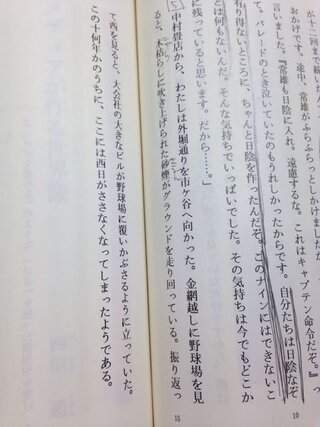 が十二回まで続いた
おかげです。途中、常雄がふらふらし
言いました。『常雄も日陰に入れ。遠慮するな。これはキャプテン命令だぞ。』っ
て。パレードのとき泣いていたのもうれしかったからです。自分たちは日陰なぞ
有り得ないところに、ちゃんと日陰を作ったんだぞ。このナインにはできないこ
とは何もないんだ。そんな気持ちでいっぱいでした。その気持ちは今でもどこか
に残っていると思います。だから……。」
5 中村畳店から、わたしは外堀通りを市ケ谷へ向かった。金網越しに野球場を見
ると、木枯らしに吹き上げられた砂煙がグラウンドを走り回っている。振り返っ
て西を見ると、大会社の大きなビルが野球場に覆いかぶさるように立っていた。
この十何年かのうちに、ここには西日がささなくなってしまったようである。
10
15